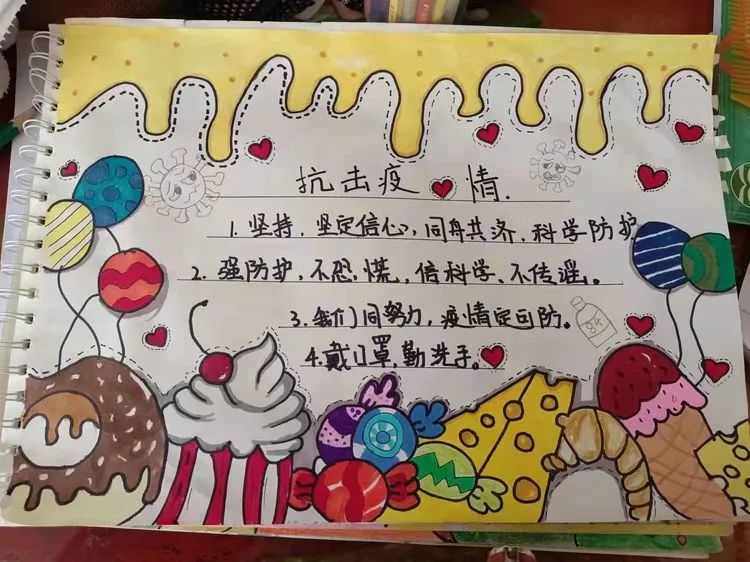 抗击疫情.
1. 坚持, 坚定信心, 同舟共济, 科学防护
2. 强防护, 不忍慌, 信科学、不传谣。
3. 我们同努力, 疫情定可防。
4. 戴口罩, 勤洗手。